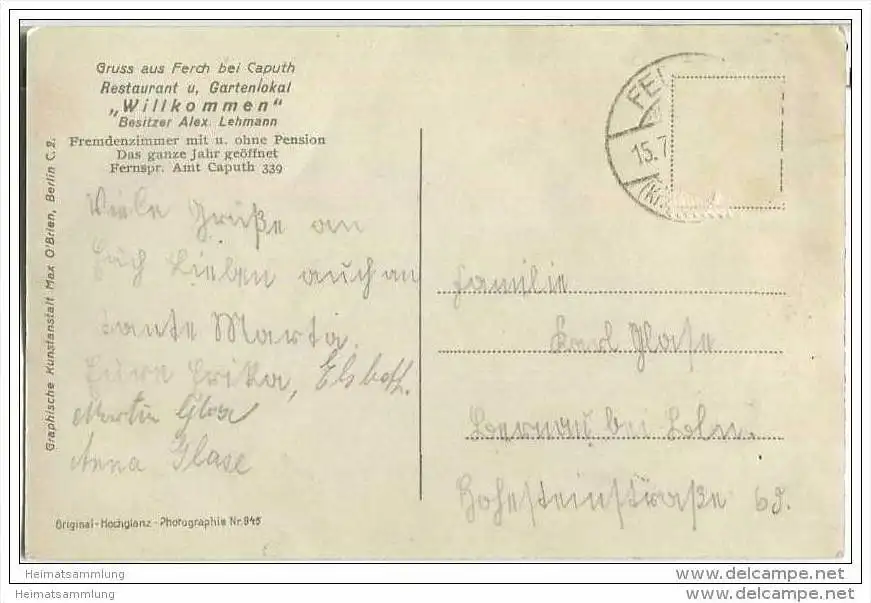 Gruss aus Ferch bei Caputh
Restaurant u. Gartenlokal
„Willkommen"
Besitzer Alex. Lehmann
Fremdenzimmer mit u. ohne Pension
Das ganze Jahr geöffnet
Fernspr. Amt Caputh 339
Graphische Kunstanstalt Max O'Brien, Berlin C.2.
Viele Grüße an
Euch Lieben auch an
Tante Marta.
Eure Erika, Elsbeth.
Martin Glase
Anna Glase
Original-Hochglanz-Photographie Nr. 945
15.7
Familie
Karl Glase
Bernau bei Bln.
Hohesteinstraße 69.
Heimatsammlung
Heimatsammlung
www.delcampe.net
www.delcampe.net